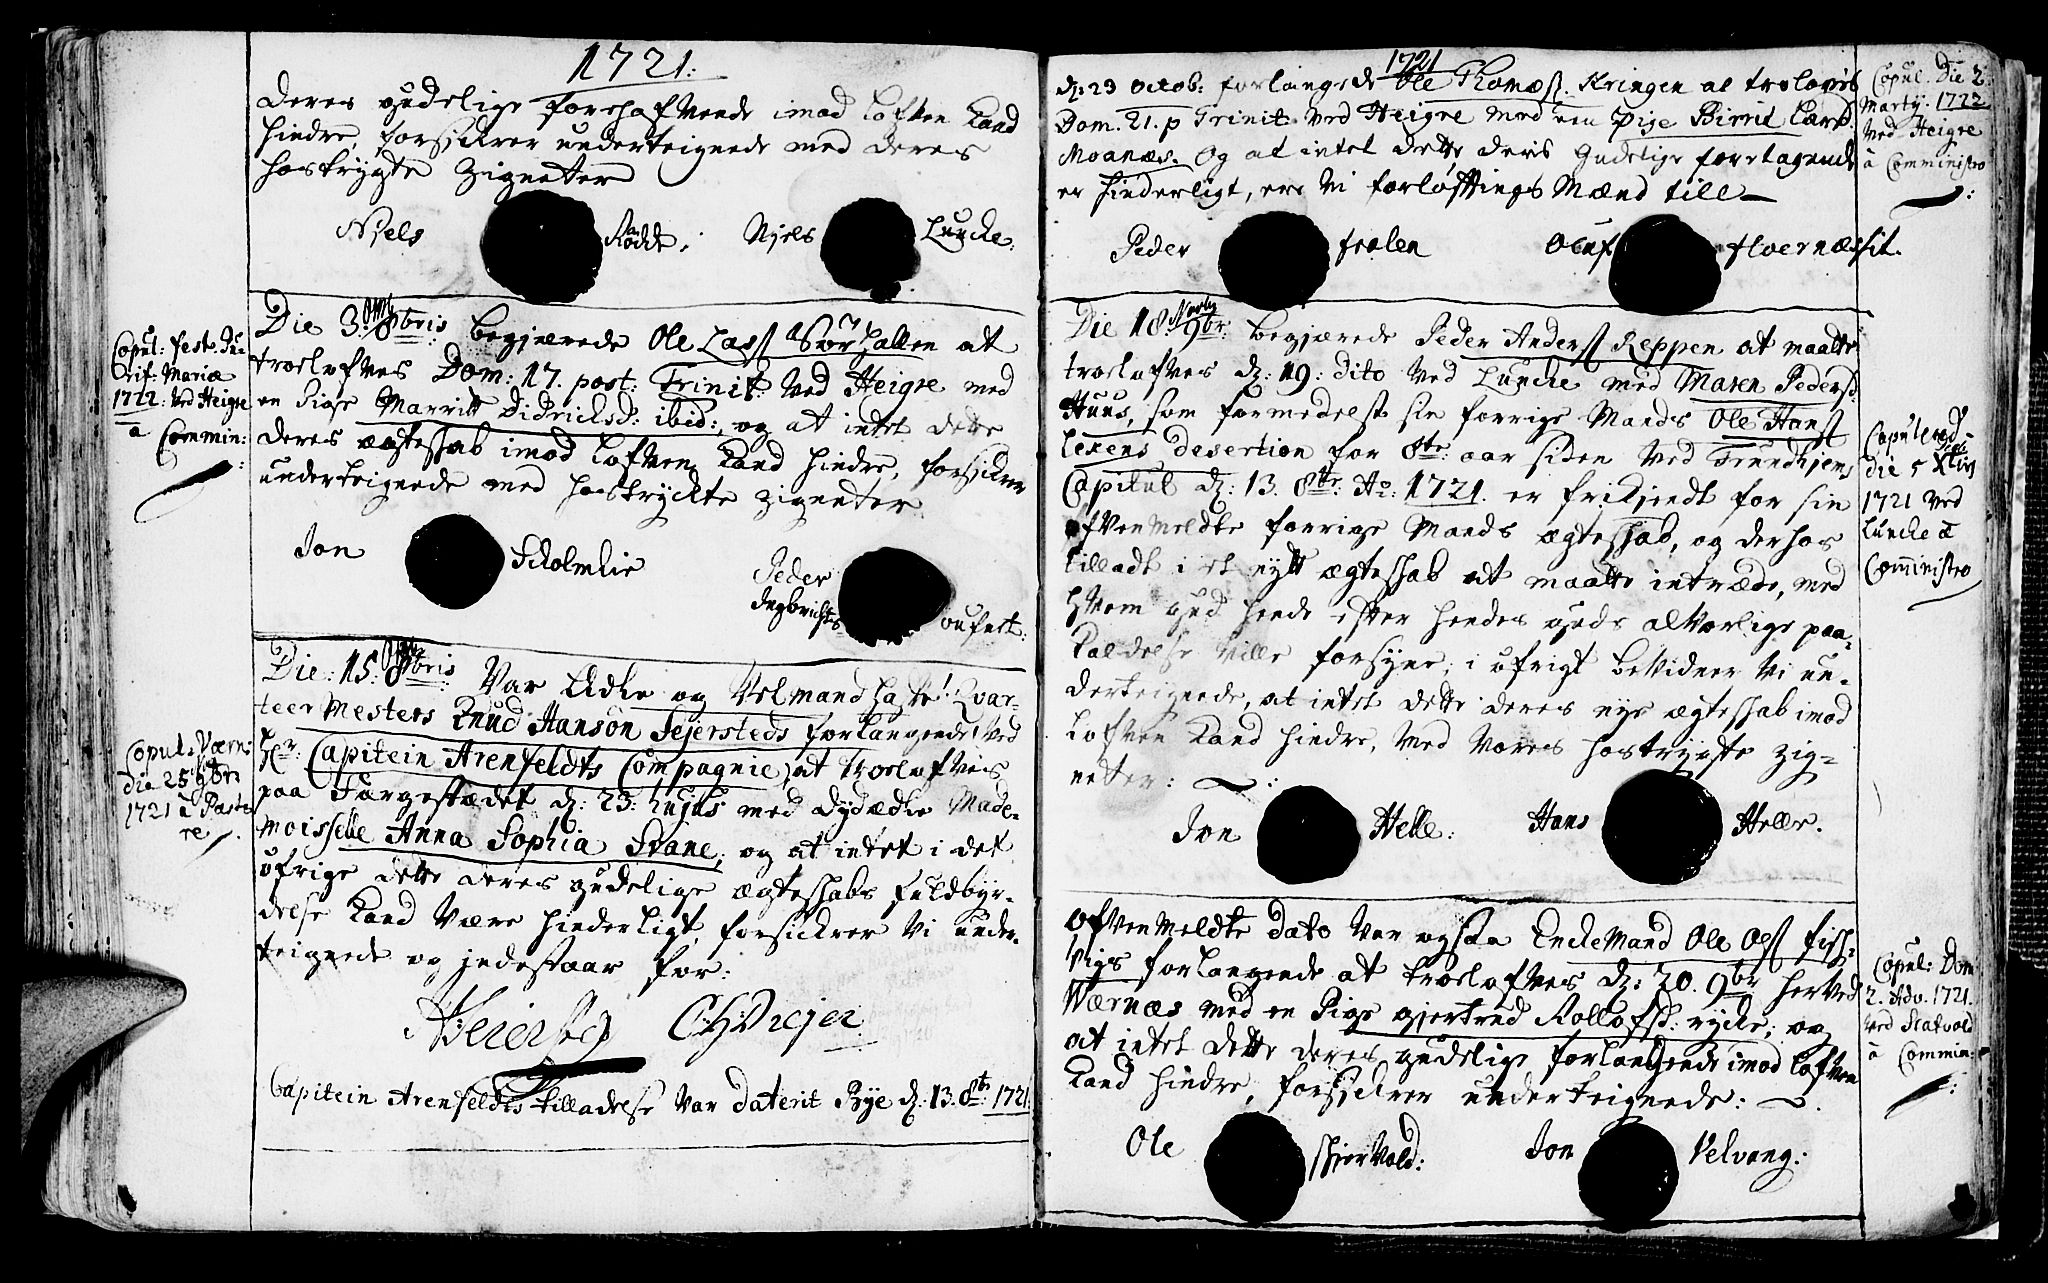 1721:
deres gudelige forehafvende imod Lofven Kand
hindre, forsickrer underteignede med deres
hostrygte Zigneter
Niels Rodde, Niels Luncke:
Die 3. 8bris begjærede Ole Lass Sørhallen at
troelofves Dom: 17. post: Trinit: ved Heigre med
en Pige Marritt Didrichsd: ibid:, og at intet dette
deres ægteskab imod Lofven Kand hindre, forsickrer
underteignede med hostryckte Zigneter
Jon Skolmlie
Peder Ingbrichts oufast:
Copul: fest. Pu-
rif: Mariæ
1722: ved Heigre
a Commin:
Die: 15: 8bris Var Ædle og Velmand haste! Qvar-
teer Mesters Knud Hanson Sejersteds forlangende ved
Hr: Capitein Arenfeldts Compagnie, at troelofves
paa Fargestædet d: 23: hujus med Dydædle Made-
moisselle Anna Sophia Stane; og at intet i det
øfrige dette deres gudelige ægteskabs fuldbyr-
delse Kand være hinderligt, forsickrer Vi under-
teignede og indestaar for:
CHDrejer
Capitein Arenfeldts tilladelse Var daterit Rye d: 13. 8br: 1721.
Copul: Værn:
die 25 9bris
1721 a Pasto
re
1721
d: 23 octob: forlangede Ole Thomæs. Kringen at trolovis
Dom. 21. p Trinit: ved Heigre med een Pige Birrit Lars
Moanæs. Og at intet dette deris Gudelige foretagende
er hinderligt, ere Vi forløftings Mænd till
Peder fralen Oluf Hoernæssit.
Copul. Die 2.
Marty. 1722
ved Heigre
a Comministro
Die 18. 9br: begjærede Peder Anderss Reppen at maatte
troelofves d: 19: dito ved Luncke med Maren Pedersd:
Huus, som formedelst sin forrige Mands Ole Hanss
Lexens desertion for 8te aar siden ved Trundhjems
Capitul d: 13. 8br: Ao: 1721. er frikjendt for sin
ofvenmeldte forrige Mands ægteskab, og derhos
tilladt i et nytt ægteskab at maatte intræde, med
hvem gud hende efter hendes guds alvorlige paa-
kaldelse ville forsyne; i øfrigt bevidner Vi un-
derteignede, at intet dette deres nye ægteskab imod
Lofven Kand hindre, med vores hostrygte Zig-
netter:
Jon Helle: Hans Helle.
Copulered
die 5 Xbris
1721 ved
Luncke a
Comministro
ofvenmeldte dato Var ogsaa Enckemand Ole Olss fish-
vigs forlangende at troelofves d: 20. 9br herved
Wærnæs med en Pige gjertrud Rollofsd: rycke; og
at intet dette deres gudelige forlangende imod Lofven
Kand hindre, forsickrer underteignede:
Ole skjervold: Jon Velvang:
Copul: Dom
2. Adv. 1721.
ved Skatvold
a Commin: